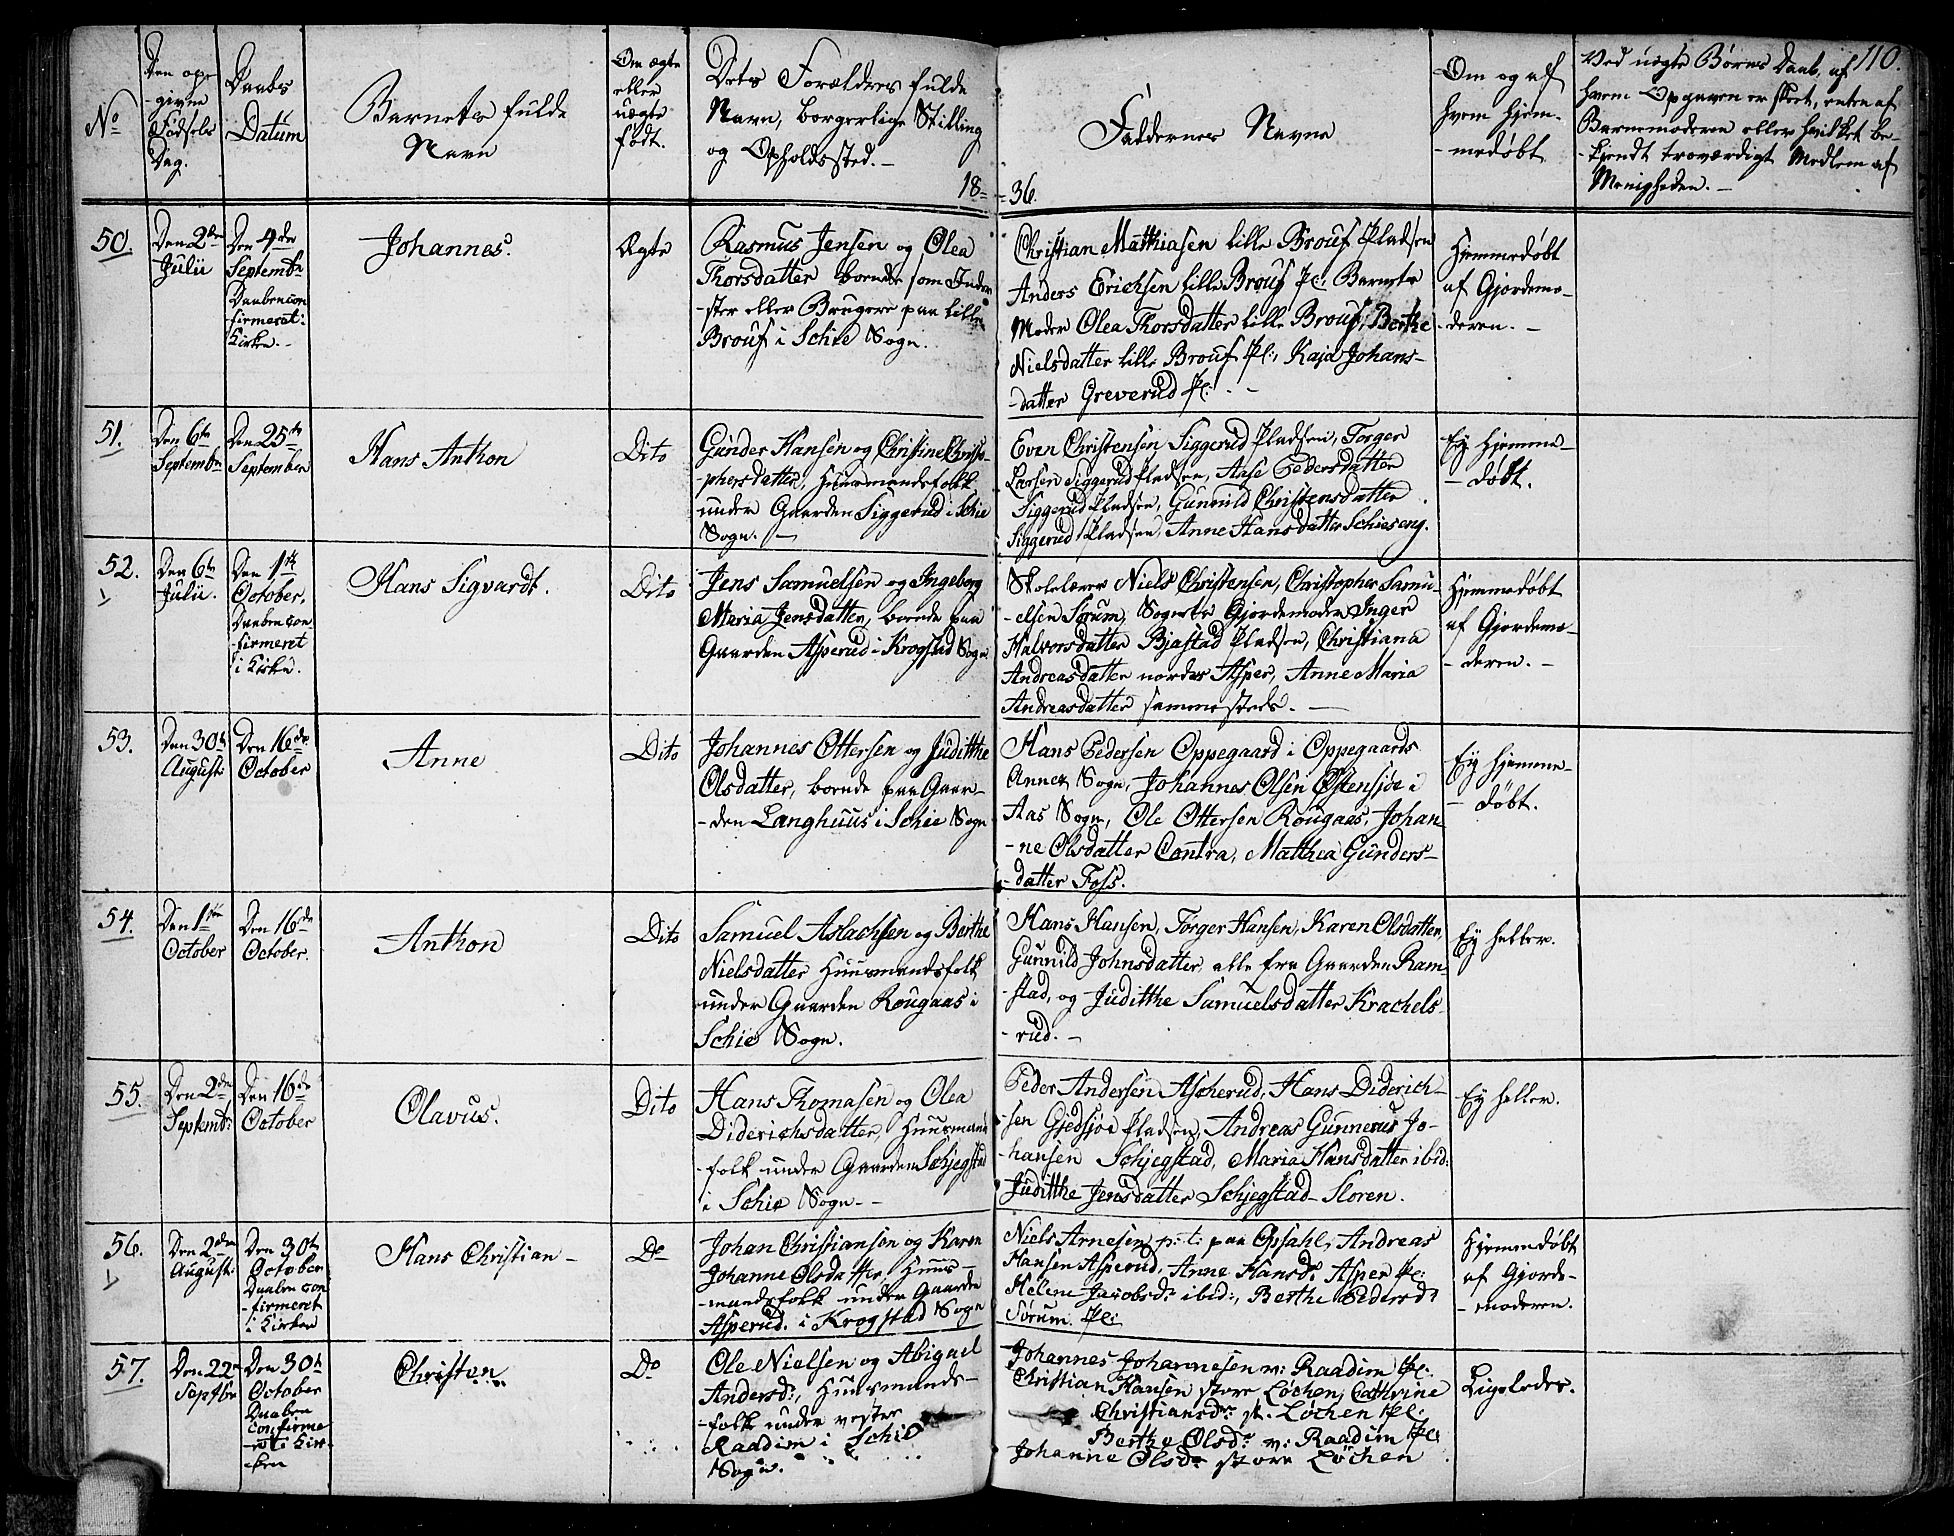 110.
No
Den op-
givne
Fødsels
Dag.
Daabs
Datum
Barnets fulde
Navn
Om ægte
eller
uægte
født.
Dets Forældres fulde
Navn, borgerlige Stilling
og Opholdssted. -
18-
-36.
Faddernes Navne
Om og af
hvem hjem-
-medøbt
Ved uægte Børns Daab, af
hvem Opgaven er skeet, enten af
Barnemoderen eller hvilket be-
-kjendt troværdigt Medlem af
Menigheden. -
50.
Den 2den
Julii
Den 4de
Septembr
Daaben con
firmeret i
Kirke. -
Johannes.
Ægte
Rasmus Jensen og Olea
Thorsdatter boende som Inder
-ster eller Brugere paa lille
Brouf i Schie Sogn.
Christian Matthiasen lille Brouf Pladsen
Anders Erichsen lille Brouf Pl: Barnets
Moder Olea Thorsdatter lille Brouf, Berthe
Nielsdatter lille Brouf Pl:, Kaja Johans-
-datter Greverud Pl: -
Hjemmedøbt
af Gjordemo-
-deren. -
51.
Den 6te
Septembr
Den 25te
September
Hans Anthon
Dito
Gunder Hansen og Christine Christo-
-phersdatter, Huusmandsfolk
under Gaarden Siggerud i Schie
Sogn. -
Even Christensen Siggerud Pladsen, Torger
Larsen Siggerud Pladsen, Aase Pedersdatter
Siggerud Pladsen, Gunnild Christensdatter
Siggerud Pladsen, Anne Hansdatter Schieseng.
Ey hjemme-
-døbt.
52.
Den 6te
Julii.
Den 1ste
October,
Daaben con-
-firmeret
i Kirke.
Hans Sigvardt.
Dito
Jens Samuelsen og Ingeborg
Maria Jensdatter, boende paa
Gaarden Asperud i Krogstad Sogn
Skolelærer Niels Christensen, Christopher Samu-
-elsen Sørum, Sognets Gjordemoder Inger
Halvorsdatter Bjastad Pladsen, Christiana
Andreasdatter nordre Asper, Anne Maria
Andreasdatter sammesteds. -
Hjemmedøbt
af Gjordemo-
-deren. -
53.
Den 30te
August
Den 16de
October
Anne
Dito
Johannes Ottersen og Juditthe
Olsdatter, boende paa Gaar-
-den Langhuus i Schie Sogn
Hans Pedersen Oppegaard i Oppegaards
Annex Sogn, Johannes Olsen Østensjøe i
Aas Sogn, Ole Ottersen Rougaas, Johan-
-ne Olsdatter Contra, Matthea Gunders-
-datter Foss.
Ey hjemme-
-døbt.
54.
Den 1ste
October
Den 16de
October.
Anthon
Dito
Samuel Aslachsen og Berthe
Nielsdatter Huusmandsfolk
under Gaarden Rougaas i
Schie Sogn.
Hans Hansen, Torger Hansen, Karen Olsdatter,
Gunnild Johnsdatter, alle fra Gaarden Ram-
-stad, og Juditthe Samuelsdatter Krachels-
-rud. -
Ey heller.
55.
Den 2den
Septembr:
Den 16de
October
Olavus.
Dito
Hans Thomasen og Olea
Diderichsdatter, Huusmand
-folk under Gaarden Schjegstad
i Schie Sogn. -
Peder Andersen Ascherud, Hans Diderich-
-sen Gjedsjøe Pladsen, Andreas Gunnerus Jo-
-hansen Schjegstad, Maria Hansdatter ibid:
Juditthe Jensdatter Schjegstad-Sloren.
Ey heller.
56.
Den 2den
August:
Den 30te
October
Daaben con
-firmeret
i Kirken
Hans Christian -
Do
Johan Christiansen og Karen
Johanne Olsdatter, Huus-
-mandsfolk under Gaarden
Asperud i Krogstad Sogn
Niels Arnesen p: t: paa Opsahl, Andreas
Hansen Asperud, Anne Hansdr Asper Pl:
Helene Jacobsdr ibid:, Berthe Pedersdr
Sørum Pl:
Hjemmedøbt
af Gjorde-
-moderen.
57.
Den 22e
Septbr
Den 30te
October
Daaben
confirme
-ret i Kir-
-ken
Christen
Do
Ole Nielsen og Abigael
Andersd:, Huusmands-
-folk under vestre
Raadim i Schie
Sogn.
Johannes Johannesen v: Raadim Pl:
Christian Hansen store Løchen, Cathrine
Christiansdr st. Løchen Pl:
Berthe Olsdr v: Raadim Pl:
Johanne Olsdr store Løchen
Ligeledes.